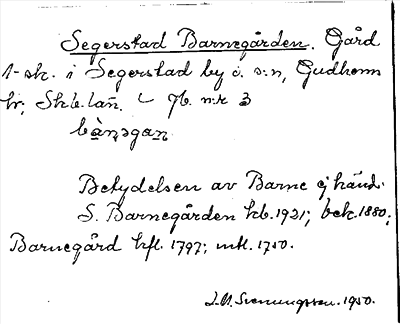 Segerstad Barnegården. Gård
1 sk. i Segerstad by o. s:n, Gudhem
hr, Skb. län. Jb. n:r 3
bànəgan
Betydelsen av Barne ej känd.
S. Barnegården kb. 1921; bek. 1880;
Barnegård kfl. 1797; mtl. 1750.
1950.